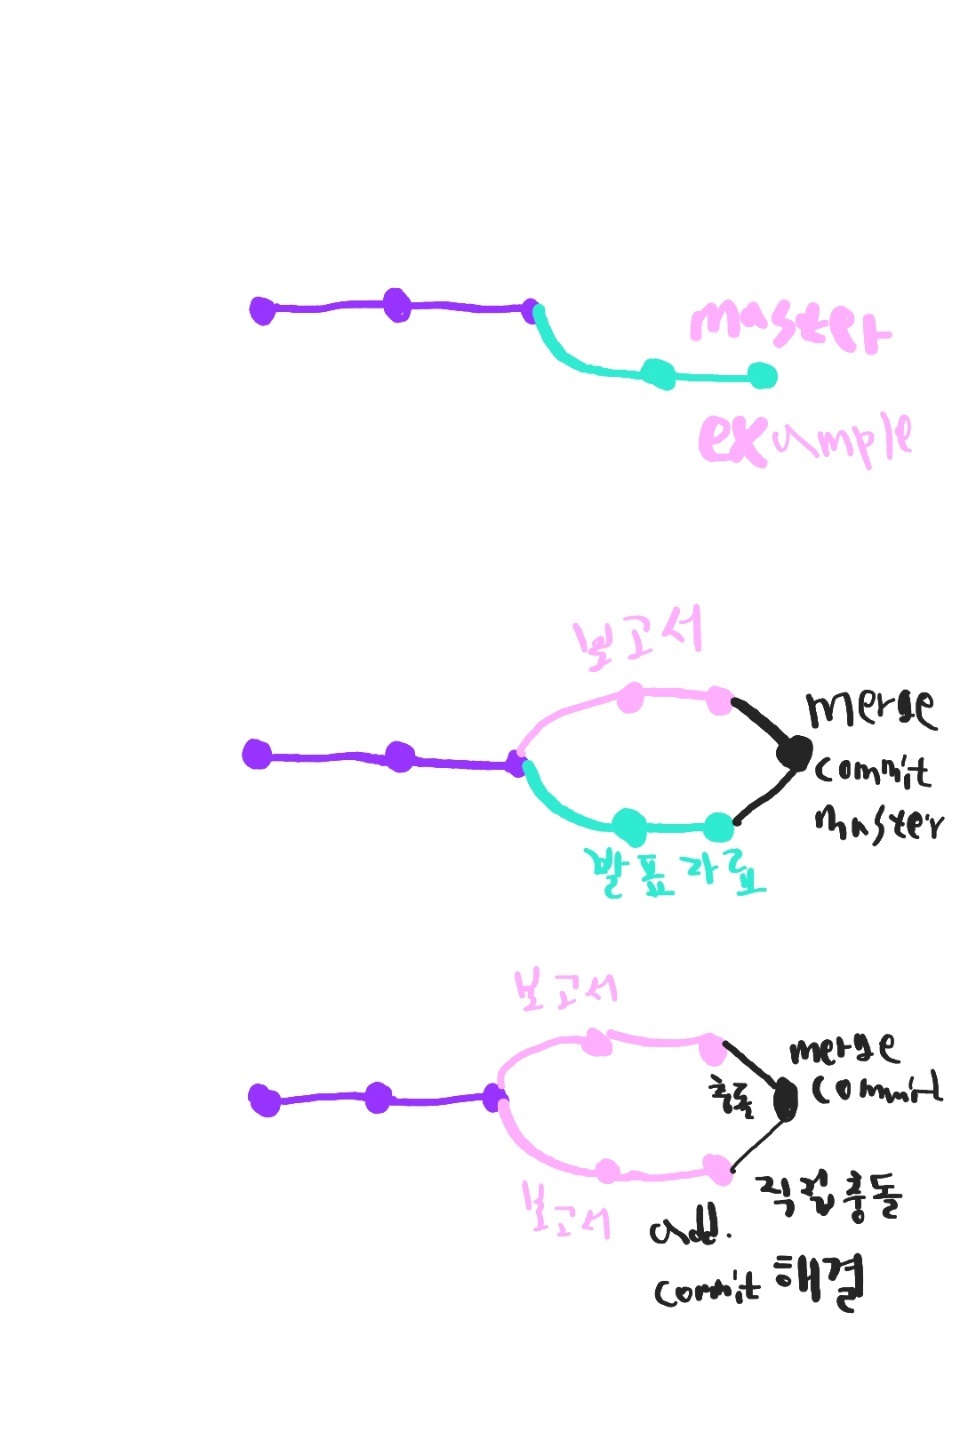 master
example
보고서
merge
commit
master
발표자료
보고서
merge
commit
충돌
보고서
직접충돌
add.
commit 해결